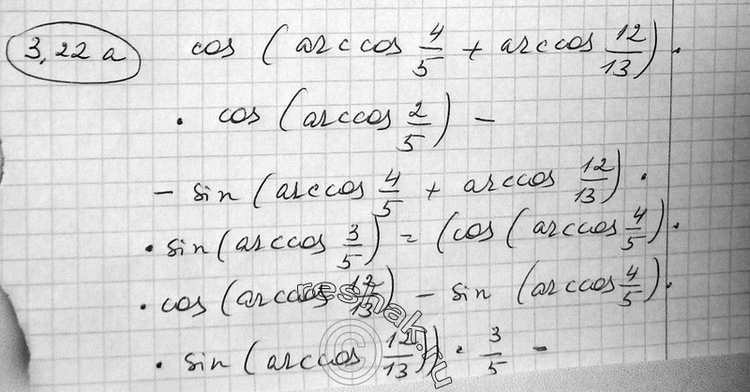 3,22 a cos (arccos 4/5 + arccos 12/13) ·
· cos (arccos 2/5) -
- sin (arccos 4/5 + arccos 12/13) ·
· sin (arccos 3/5) = (cos (arccos 4/5) ·
· cos (arccos 12/13) - sin (arccos 4/5) ·
· sin (arccos 12/13)) · 3/5 -
reshak.ru